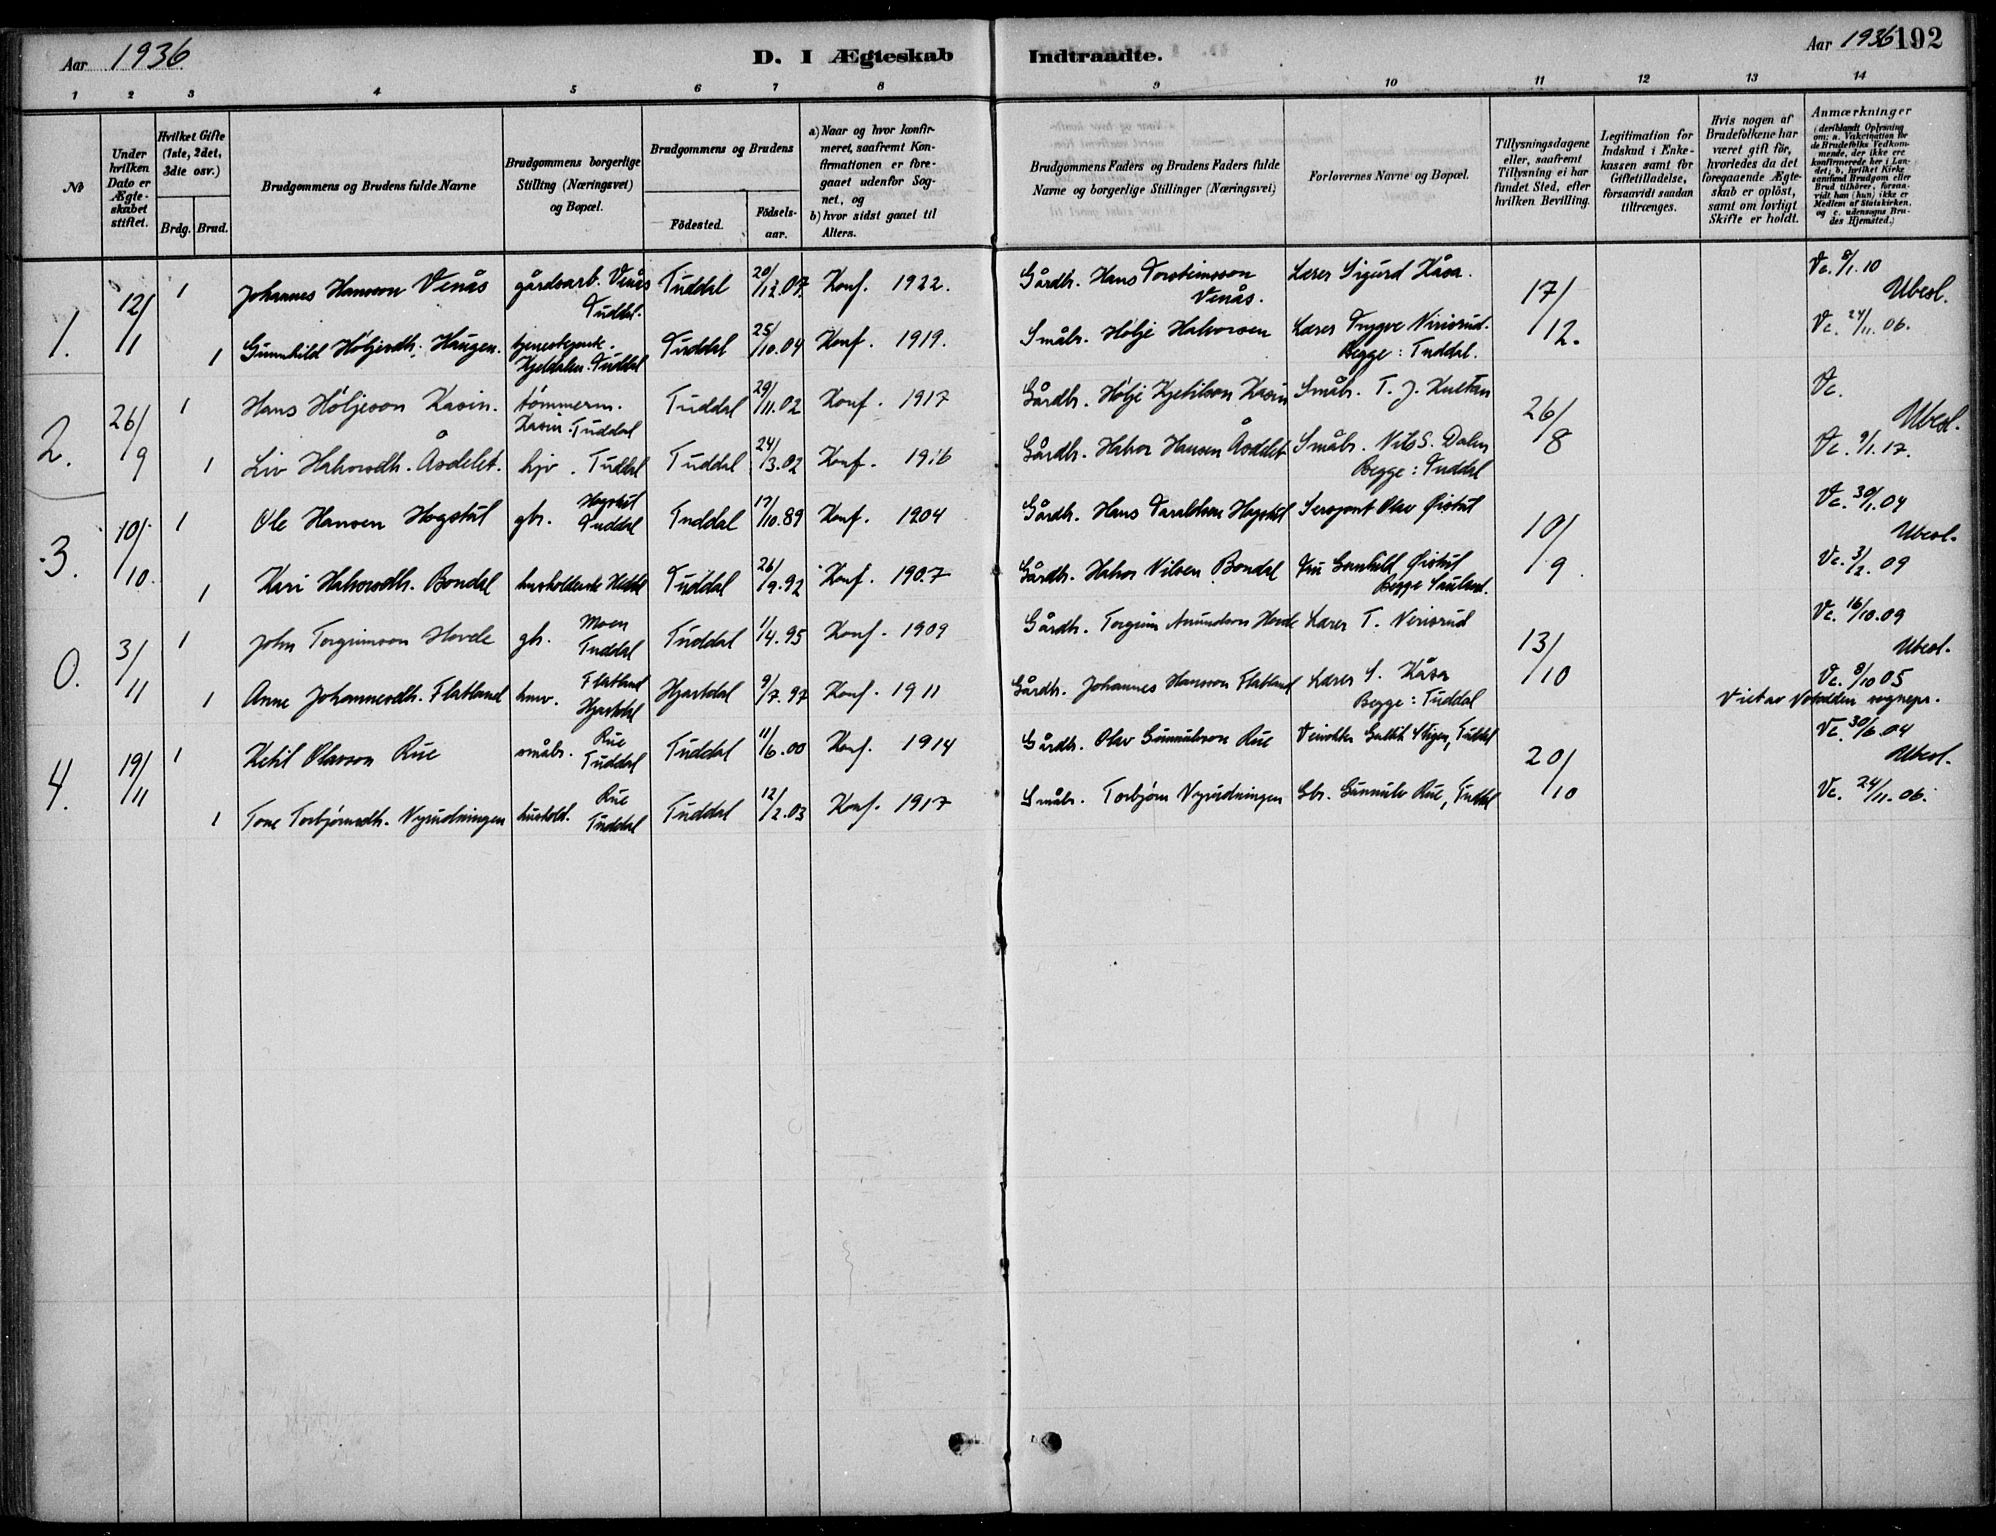 Aar 1936
D. I Ægteskab
Indtraadte.
Aar 1936 192
1 2 3 4 5 6 7 8 9 10 11 12 13 14
No
Under hvilken Dato er Ægteskabet stiftet.
Hvilket Gifte (1ste, 2det, 3die osv.)
Brdg. Brud.
Brudgommens og Brudens fulde Navne
Brudgommens borgerlige Stilling (Næringsvei) og Bopæl.
Brudgommens og Brudens
Födested. Födselsaar.
a) Naar og hvor konfirmeret, saafremt Konfirmationen er foregaaet udenfor Sognet, og
b) hvor sidst gaaet til Alters.
Brudgommens Faders og Brudens Faders fulde Navne og borgerlige Stillinger (Næringsvei)
Forlovernes Navne og Bopæl.
Tillysningsdagene eller, saafremt Tillysning ei har fundet Sted, efter hvilken Bevilling.
Legitimation for Indskud i Enkekassen samt for Giftetilladelse, forsaavidt saadan tiltrænges.
Hvis nogen af Brudefolkene har været gift för, hvorledes da det foregaaende Ægteskab er oplöst, samt om lovligt Skifte er holdt.
Anmærkninger (deriblandt Oplysning om: a. Vakcination for de Brudefolks Vedkommende, der ikke ere konfirmerede her i Landet; b. hvilket Kirkesamfund Brudgom eller Brud tilhörer, forsaavidt han (hun) ikke er Medlem af Statskirken, og c. udensogns Brudes Hjemsted.)
1. 12/1 1 Johannes Hansson Venås gårdsarb. Venås Tuddal. Tuddal 20/12.07. Konf. 1922. Gårdbr. Hans Torsteinsson Venås. Lærer Sigurd Kåsa. 17/12. Vc. 8/1.10 Ubesl.
1 Gunnhild Høljesdtr. Haugen. tjenestejente. Kjeldalen. Tuddal Tuddal 25/10.04 Konf. 1919. Småbr. Hølje Halvorsen Lærer Trygve Nirisrud. Begge: Tuddal. Vc. 24/11.06.
2. 26/9 1 Hans Høljeson Kasin. tømmerm. Kasin. Tuddal Tuddal 29/11.02 Konf. 1917 Gårdbr. Hølje Kjetilson Kasin Småbr. T. J. 26/8 Vc. Ubesl.
1 Liv Halvorsdtr. Åsdelet. hjv. Tuddal Tuddal 24/3.02 Konf. 1916 Gårdbr. Halvor Hansen Åsdelet Småbr. Nils S. Dalen Begge: Tuddal Vc. 9/1.17.
3. 10/10. 1 Ole Hansen Hogstul gbr. Hogstul Tuddal Tuddal 17/10.89 Konf. 1904 Gårdbr. Hans Hogstul Sersjant Olav Øistul 10/9. Vc. 30/1.04 Ubesl.
1 Kari Halvorsdtr. Bondal husholderske Tuddal 26/9.92 Konf. 1907 Gårdbr. Halvor Nilsen Bondal Fru Gunhild Øistul Begge Sauland. Vc. 3/2.09
0. 3/11 1 John Torgrimson Hovde gbr. Moen Tuddal Tuddal 1/4.95 Konf. 1909 Gårdbr. Torgrim Amundson Hovde Lærer T. Nirisrud 13/10 Vc. 16/10.09 Ubesl.
1 Anne Johannesdtr. Flatland hmv. Flatland Hjartdal Hjartdal 9/7.97 Konf. 1911 Gårdbr. Johannes Hansson Flatland Lærer S. Kåsa Begge: Tuddal Vc. 8/10 05
Viet av Notodden sognepr.
4. 19/11 1 Ketil Olavson Rue småbr. Rue Tuddal Tuddal 11/6.00 Konf. 1914 Gårdbr. Olav Gunnulvson Rue Veivokter Stigen, Tuddal 20/10 Vc. 30/6.04 Ubesl.
1 Tone Torbjørnsdtr. Nyrudningen hushold. Rue Tuddal Tuddal 12/2.03 Konf. 1917 Småbr. Torbjørn Nyrudningen Gbr. Gunnulv Rue, Tuddal Vc. 24/11.06.